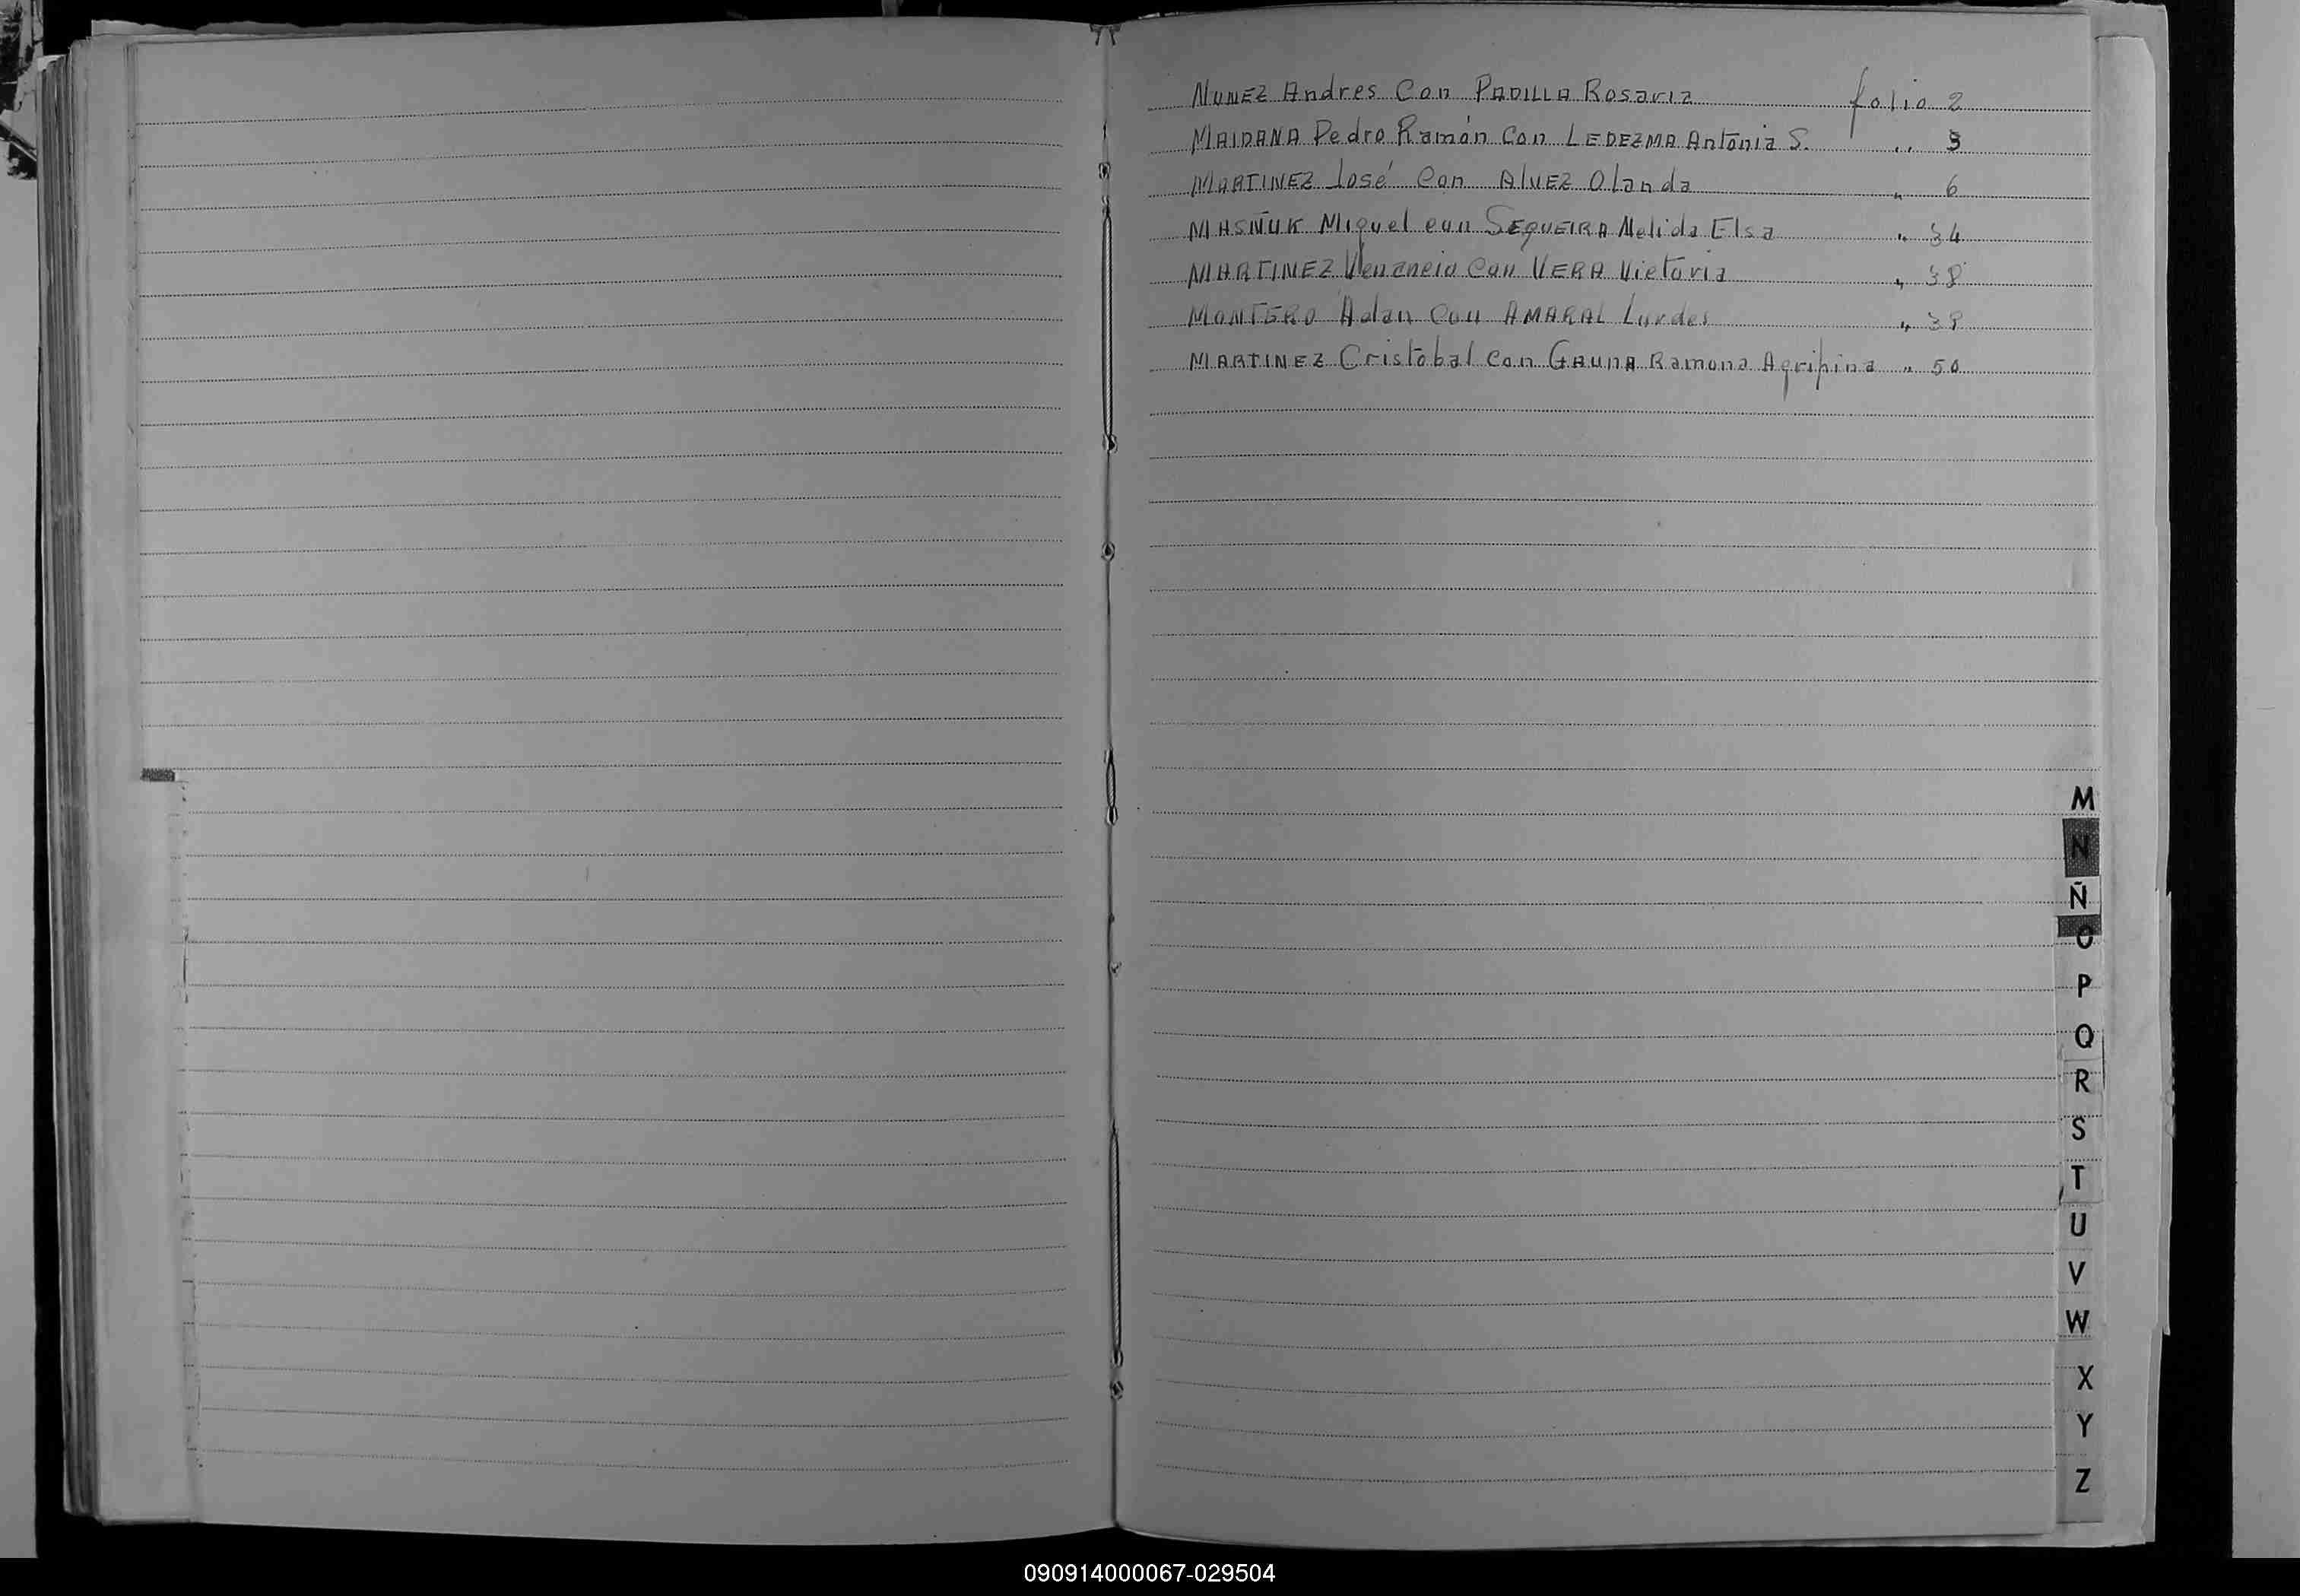 NUNEZ Andres Con PADILLA Rosaria folio 2
MAIDANA Pedro Ramón Con LEDEZMA Antonia S. " 3
MARTINEZ José Con ALVEZ Olanda " 6
MASÑUK Miguel con SEQUEIRA Nelida Elsa " 34
MARTINEZ Venancio Con VERA Victoria " 38
MONTERO Adan Con AMARAL Lurdes " 39
MARTINEZ Cristobal Con GAUNA Ramona Agripina " 50
M
N
Ñ
O
P
Q
R
S
T
U
V
W
X
Y
Z
090914000067-029504